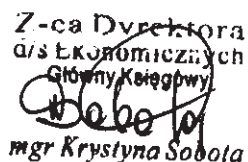 Z-ca Dyrektora
d/s Ekonomicznych
Główny Księgowy
Sobota
mgr Krystyna Sobota